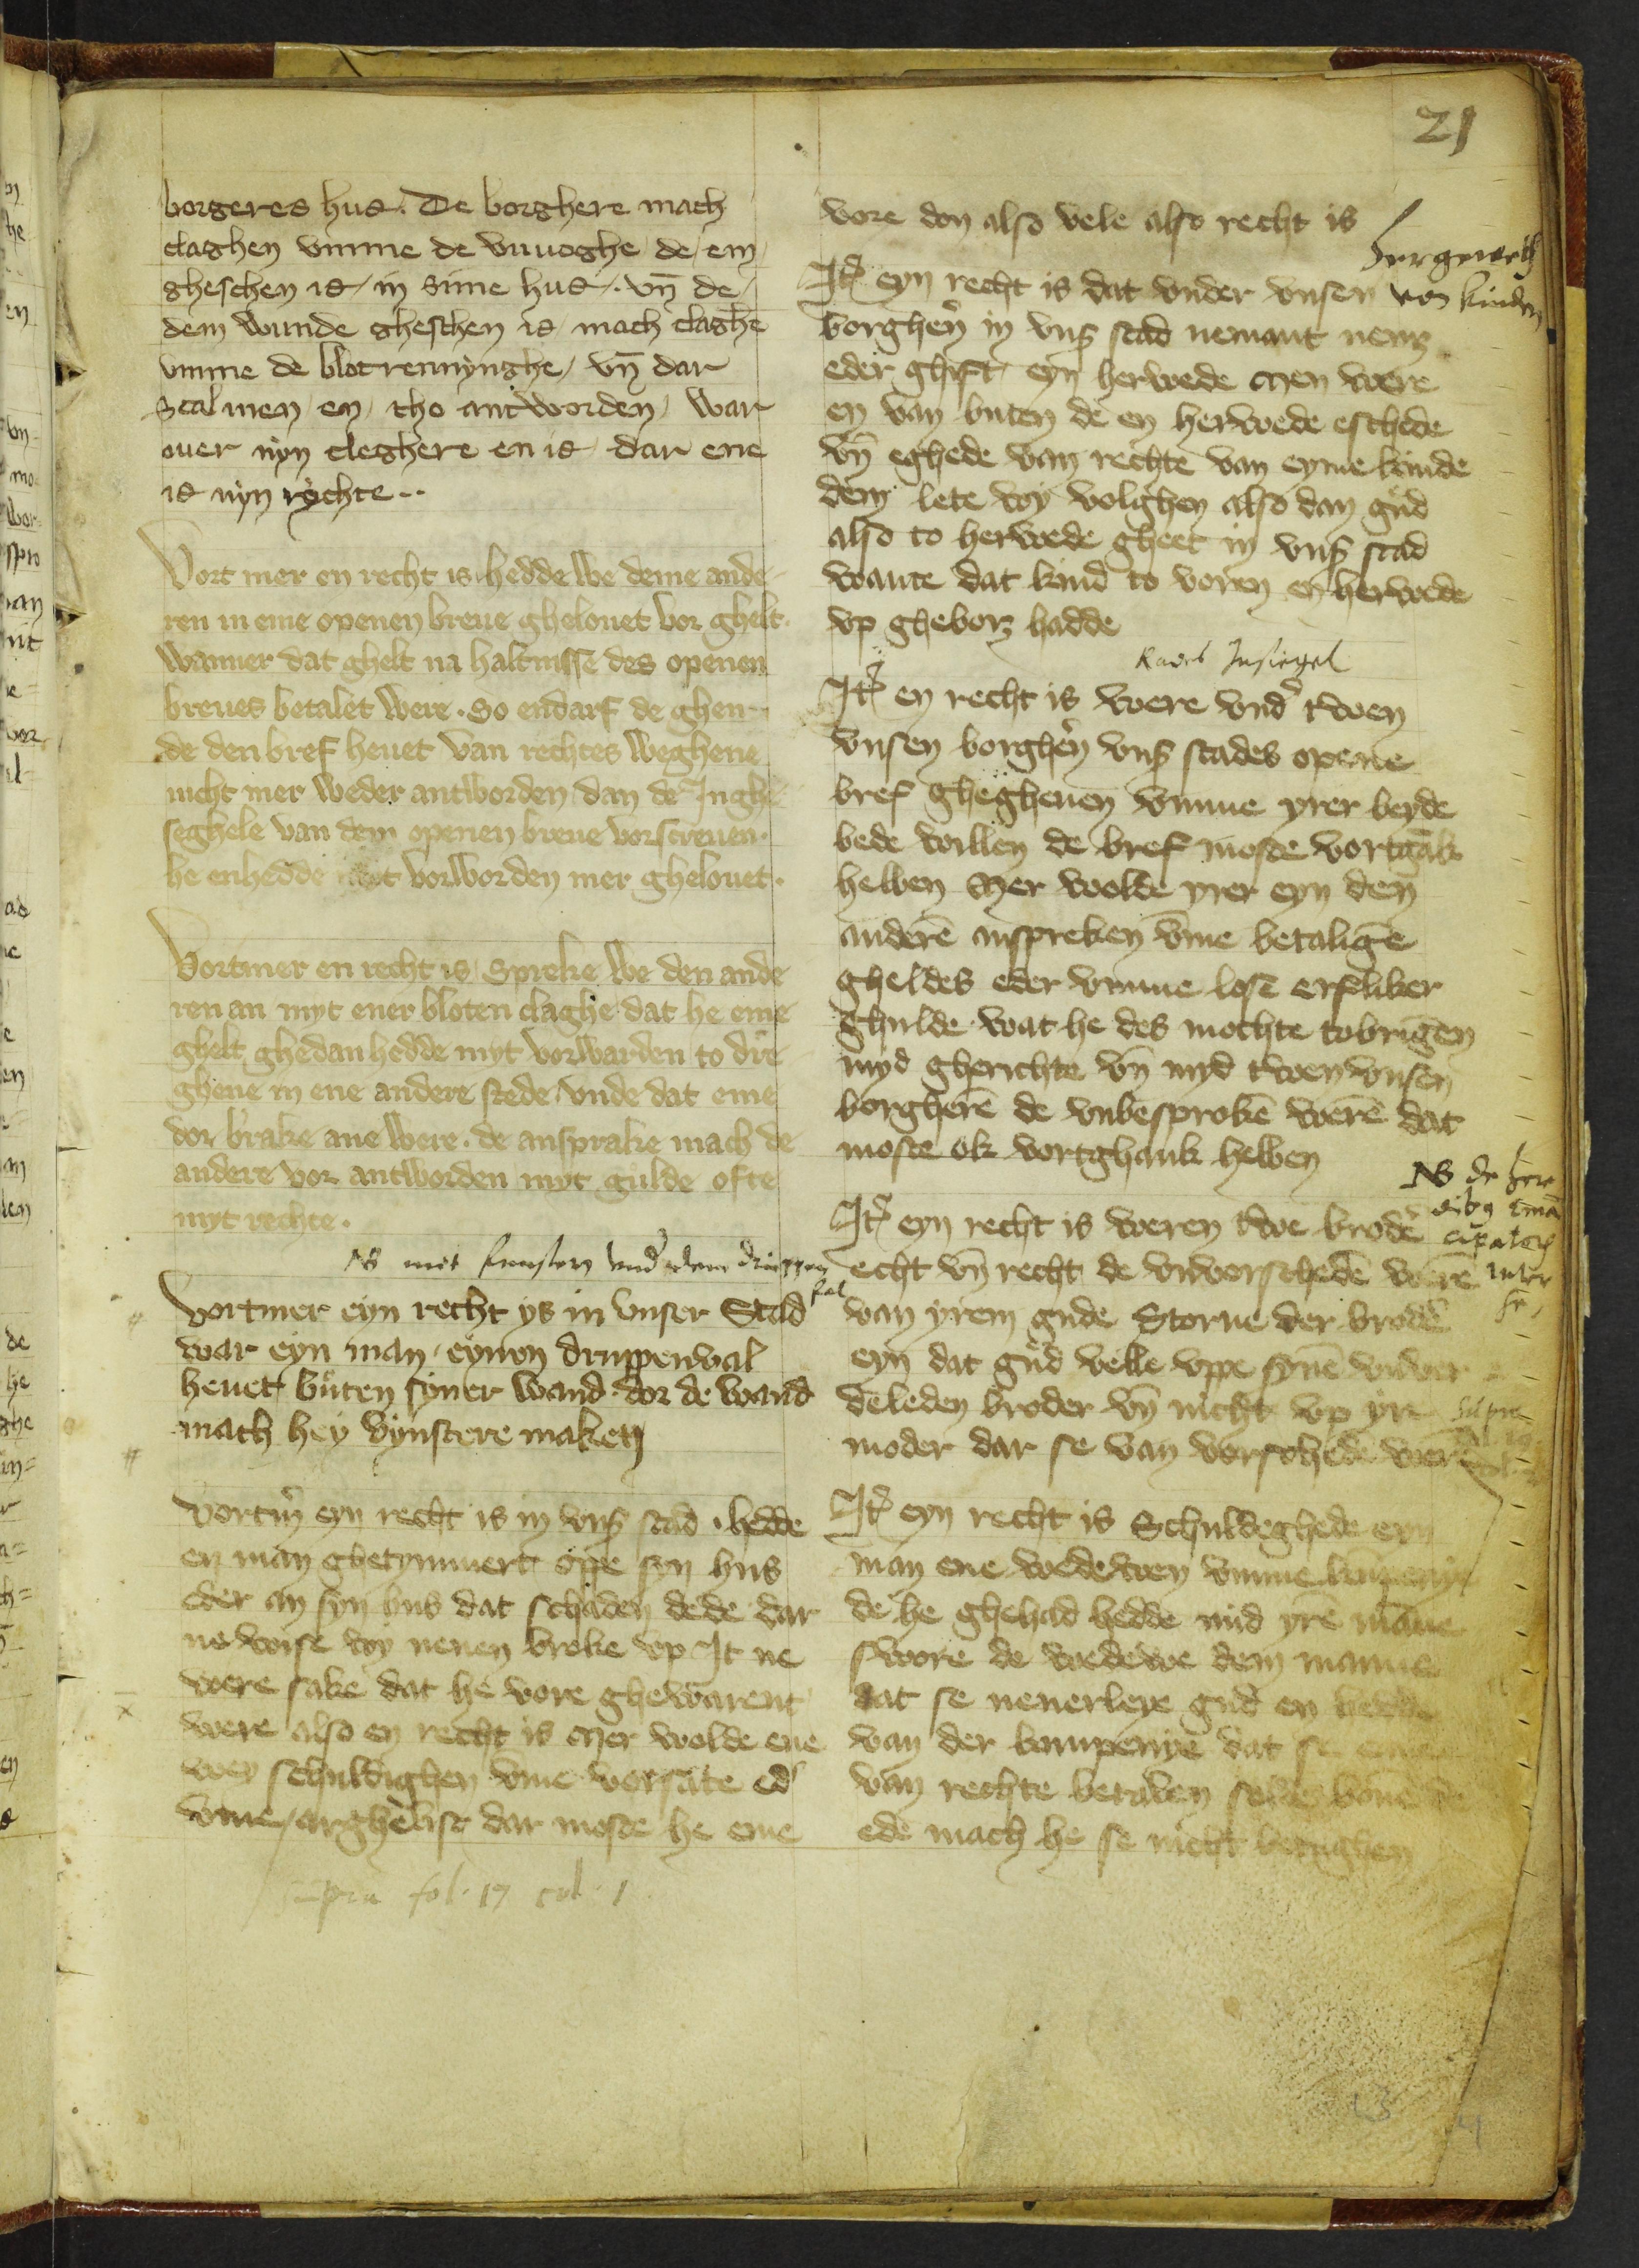 21
borgeres hus. De borghere mach
claghen vmme de vnuoghe de em
gheschen is in sime hus. vn̄ de
dem wunde gheschen is mach claghē
vmme de blotrennynghe vn̄ dar
Scal men en tho antworden war
ouer nyn cleghere en is dar ene
is nyn rychte..
Vort mer en recht is hedde we deme ande
ren in eme openen breue ghelouet vor ghelt.
wanner dat ghelt na haltnisse des openen
breues betalet were. So endarf de ghen
de den bref heuet van rechtes weghene
nicht mer weder antworden dan de Inghe
seghele van dem openen breue vorscreuen.
he enhedde myt vorworden mer ghelouet.
Vortmer en recht is Spreke we den ande
ren an myt ener bloten claghe dat he eme
ghelt ghedan hedde myt vorwarden to dre
ghene in ene andere stede vnde dat eme
dor brake ane were. de ansprake mach de
andere vor antworden myt gulde ofte
myt rechte.
NB met fenstern vnd dem druppen
fal
vortmer eyn recht ys in vnser Stad
war eyn man eynen druppenval
heuet buten syner wand dor de wand
mach hey vynstere maken
vortm̄ eyn recht is in vns̄ stad. hedde
en man ghetymmert oppe syn hus
eder an syn hus dat schaden dede dar
ne wise wy nenen broke vp It ne
were sake dat he vore ghewarent
were also en recht is Mer wolde ene
wey schuldighen vm̄e vorsate ed̛
vm̄e arghelist dar moste he eme
supra fol. 17 col. 1
vore don also vele also recht is
Hergewet
von kindern
It̛ eyn recht is dat vnder vnsen
borghen̛ in vns̄ stad nemant nemt
eder ghift eyn herwede Men were
en van buten de en herwede eschede
vn̄ eghede van rechte van eyme kinde
dem lete wy volghen also dan gud
also to herwede gheet in vns̄ stad
wante dat kind to voren en herwede
vp ghebort hadde
Radet Insiegel
It̛ en recht is were vnd̛ twen
vnsen borghen̛ vns̄ stades opene
bref ghegheuen vmme yrer beyde
bede willen de bref moste vortgāk
hebben Mer wolde yrer eyn den
anderē anspreken vm̄e betalīge
gheldes eder vmme losē erfliker
ghulde wat he des mochte tobrīgen
myd gherichte vn̄ myd twen vnsen
borgherē de vnbesprokē werē dat
moste ok vortghank hebben
NB de here
It̛ eyn recht is weren twe brodē
echt vn̄ recht de vnvorschedē werē
van yrem gude Storue der brodē
eyn dat gud velle vppe synē vnver
deleden broder vn̄ nicht vp yr
moder dar se van vorschedē werē
It̛ eyn recht is Schuldeghede eyn
man ene wedewen vmme kumpenye
de he ghehad hedde mid yrē māne
swore de wedewe dem manne
dat se nenerleye gud en hedde
van der kumpenye dat se eme
van rechte betalen solde bouē de
ede mach he se nicht betughen